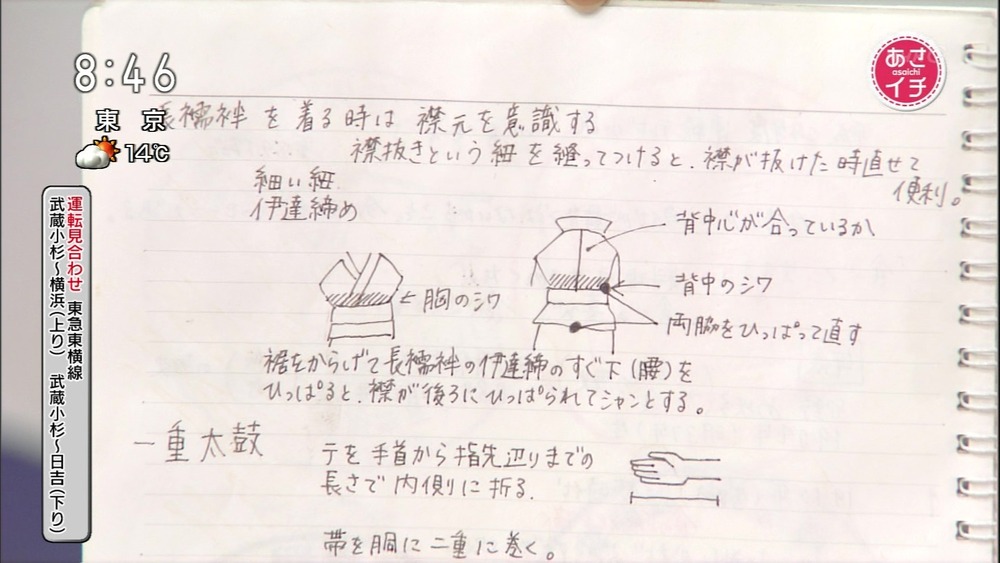 8:46
あさ
asaichi
イチ
東京
14℃
運転見合わせ 東急東横線
武蔵小杉～横浜(上り) 武蔵小杉～日吉(下り)
長襦袢を着る時は 襟元を意識する
襟抜きという紐を縫ってつけると、襟が抜けた時直せて
便利。
細い紐
伊達締め
背中心が合っているか
胸のシワ
背中のシワ
両脇をひっぱって直す
裾をからげて長襦袢の伊達締のすぐ下(腰)を
ひっぱると、襟が後ろにひっぱられてシャンとする。
一重太鼓
テを手首から指先辺りまでの
長さで内側に折る.
帯を胴に二重に巻く。